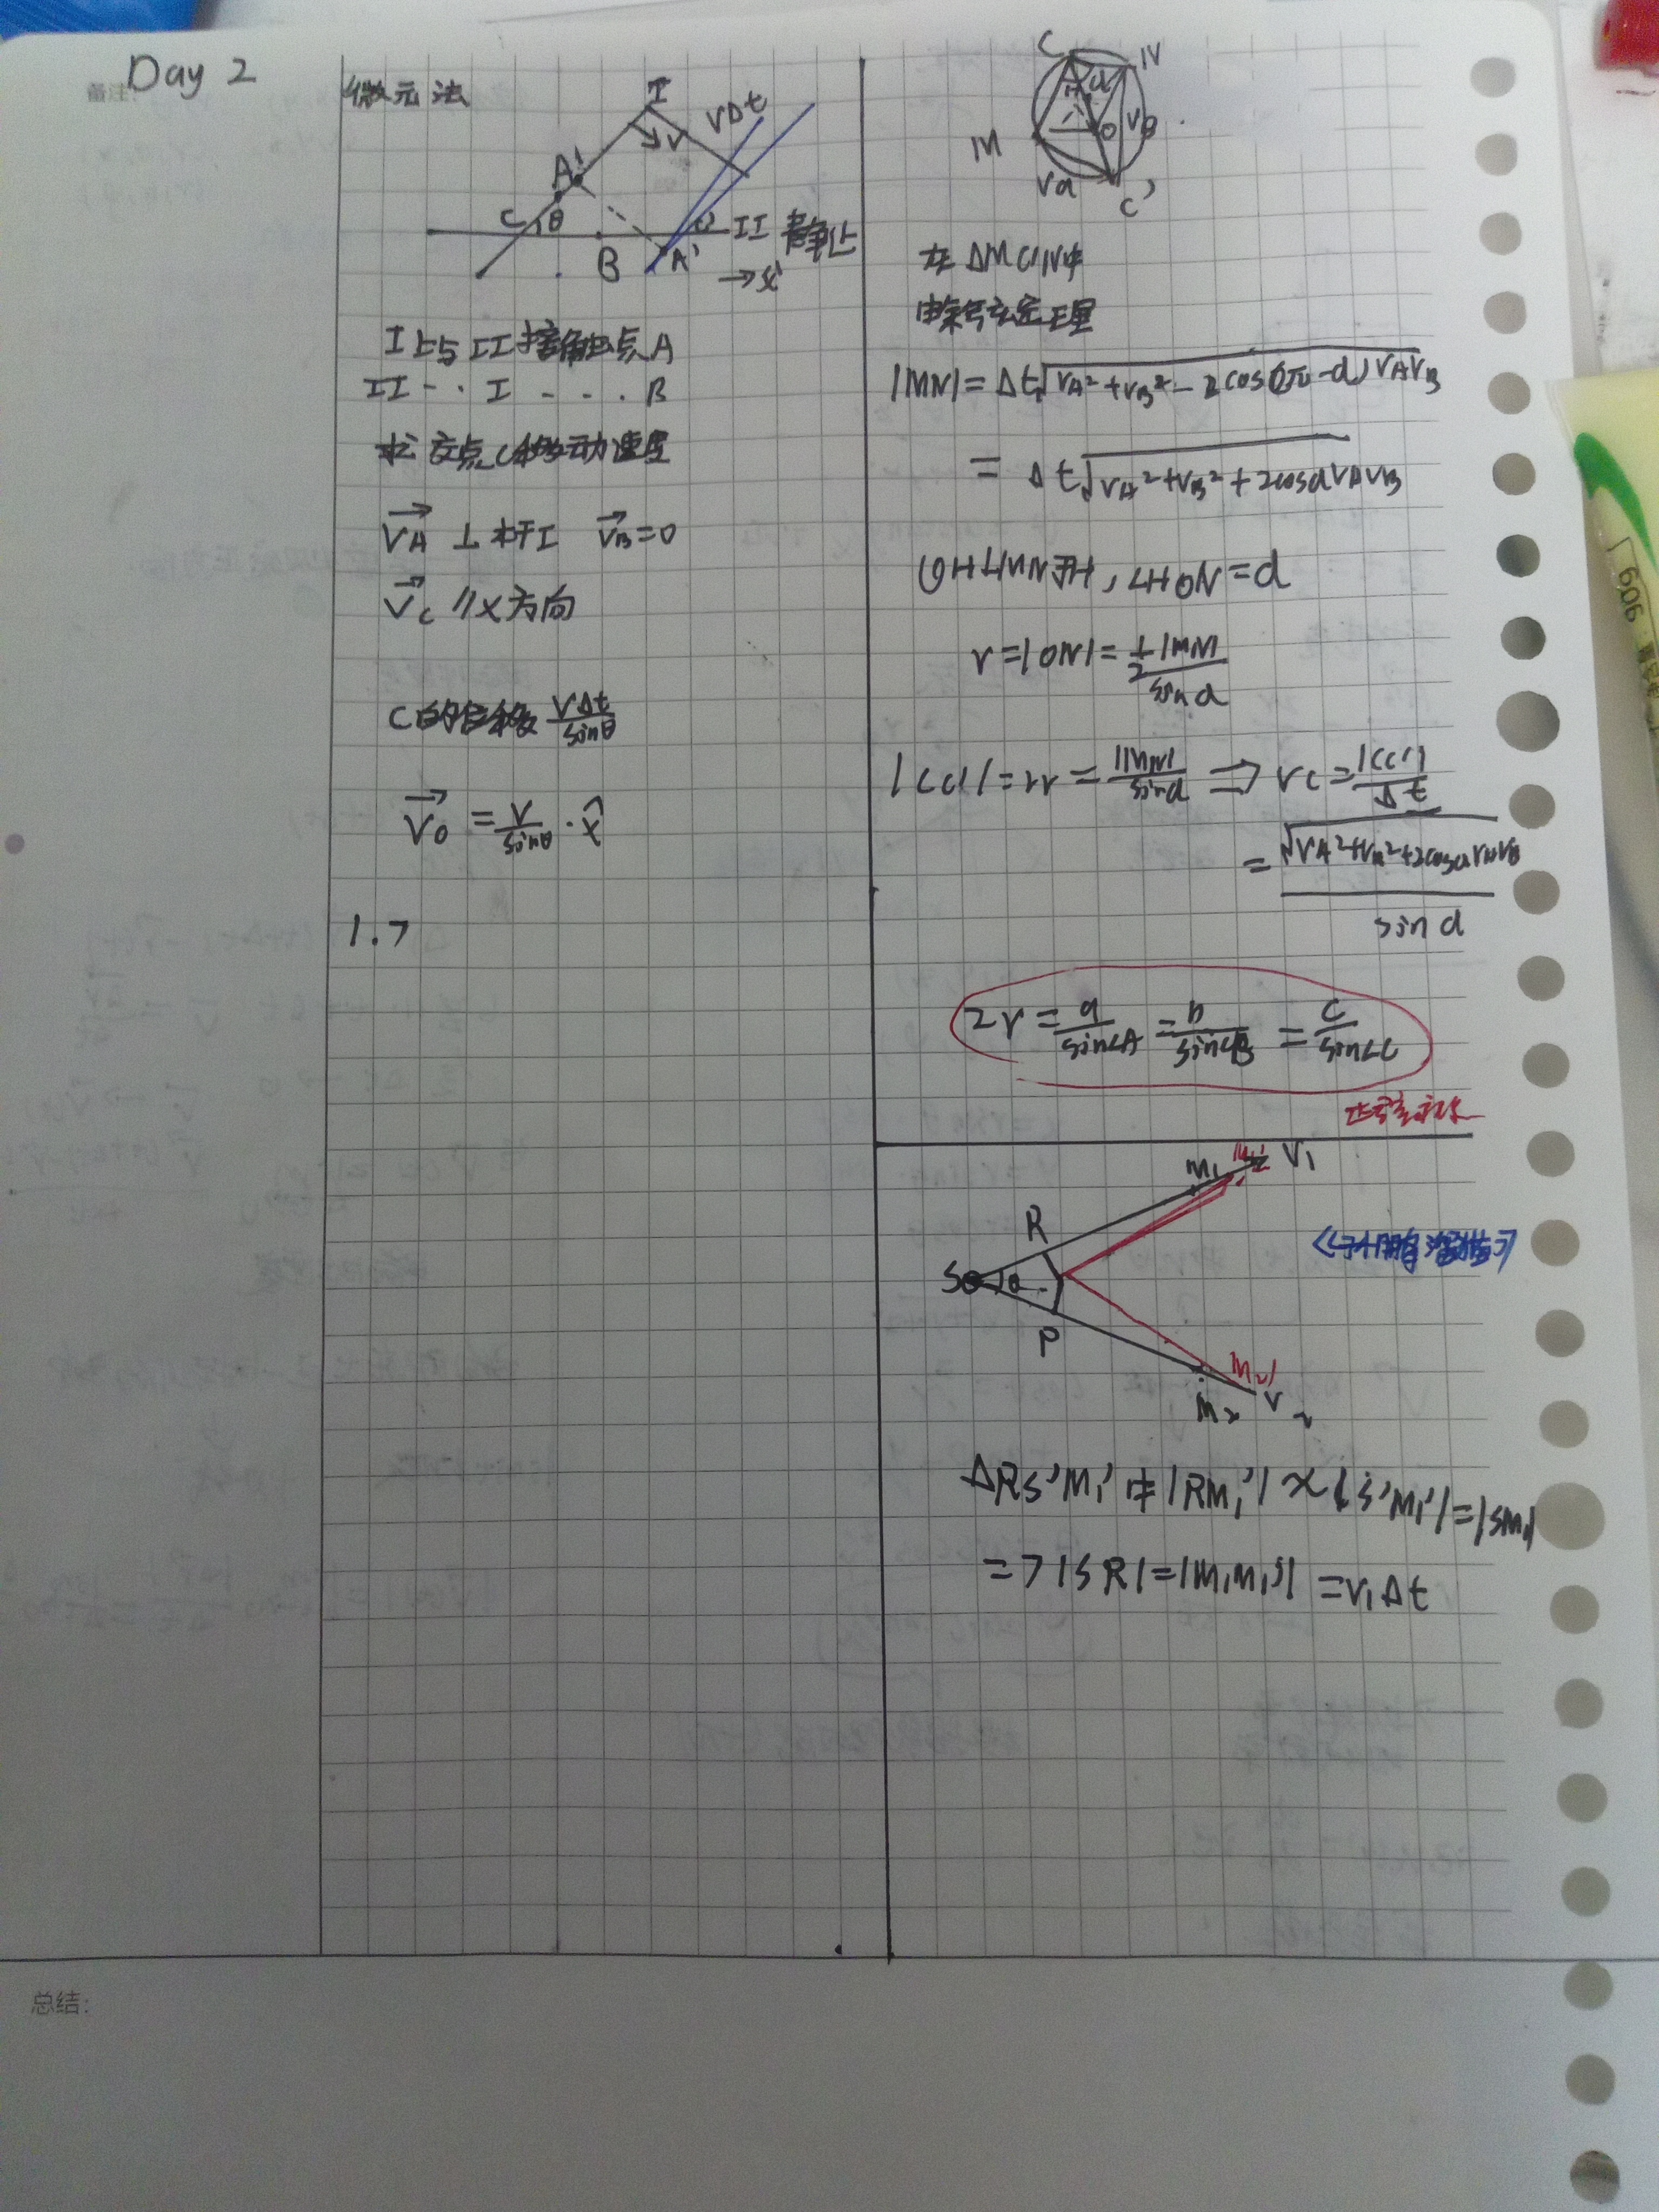 备注:
Day 2
微元法
I
v
vΔt
A'
C
θ
B
A'
II 静止
→x
I上与II接触点A
II··I-···B
求交点C移动速度
VA ⊥杆I VB=0
Vc //x方向
C的位移 vΔt/sinθ
V0 = v/sinθ · x̂
1.7
C
N
M
H
d
O
C'
在ΔMC'N中
由余弦定理
|MN|=Δt√(VA²+VB²-2cos(π-d)VAVB)
=Δt√(VA²+VB²+2cosdVAVB)
OH⊥MN于H,∠HON=d
r=|ON|=½|MN|/sind
|CC'|=2r=|MN|/sind ⇒ vc=|CC'|/Δt
=√(VA²+VB²+2cosdVAVB)/sind
2r=a/sin∠A=b/sin∠B=c/sin∠C
M1
V1
R
S
θ
P
M2'
M2
V2
ΔRS'M1'中|RM1'|≈|S'M1'|=|SM1|
=>|SR|=|M1M1'|=v1Δt
总结:
606